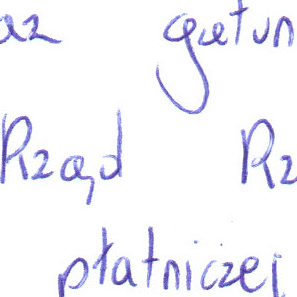 az gatun
Rząd Rz
płatniczej